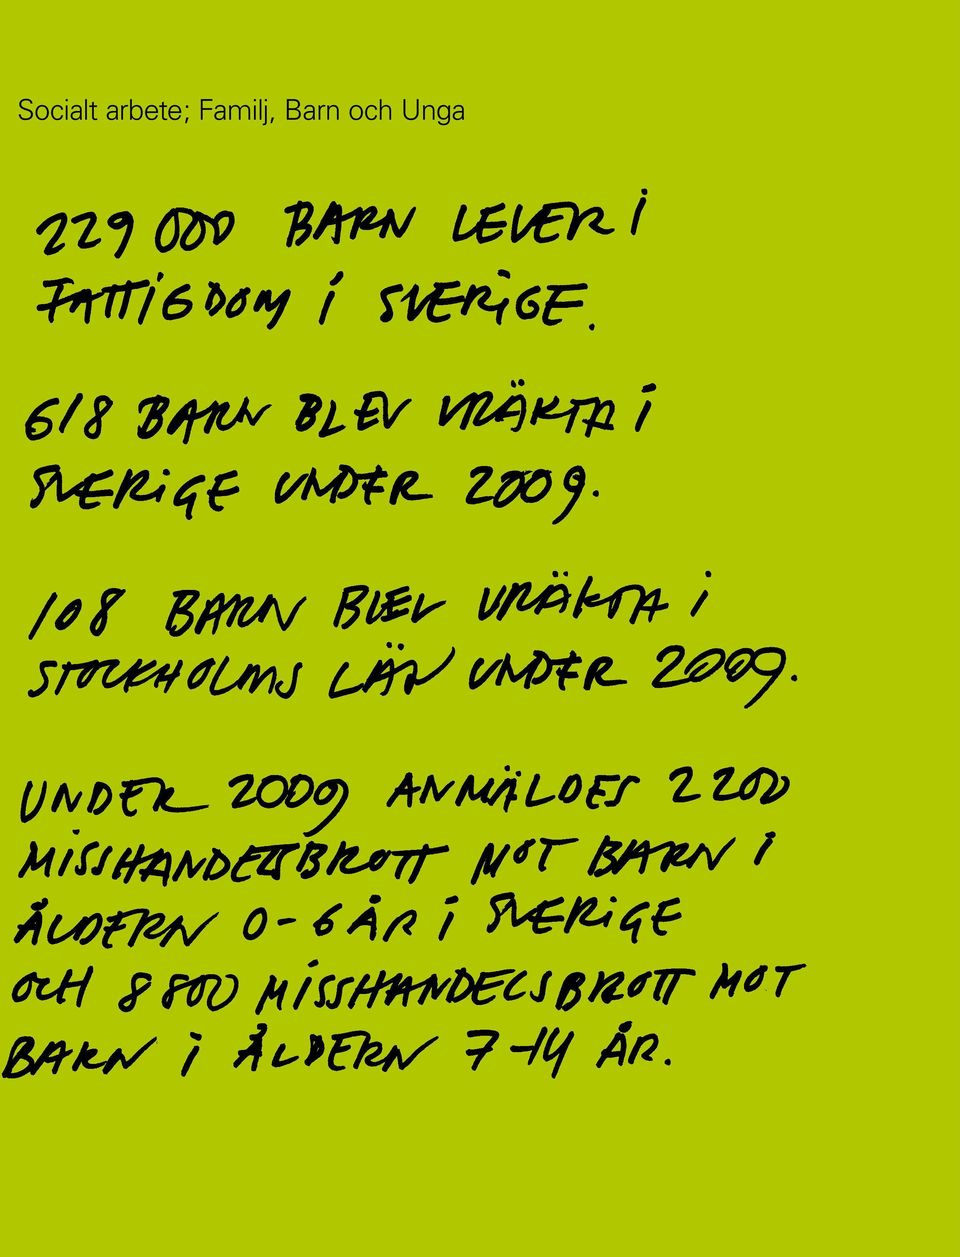 Socialt arbete; Familj, Barn och Unga
229 000 BARN LEVER i
FATTiGDOM i SVERiGE.
618 BARN BLEV VRÄKTA i
SVERiGE UNDER 2009.
108 BARN BLEV VRÄKTA i
STOCKHOLMS LÄN UNDER 2009.
UNDER 2009 ANMÄLDES 2 200
MiSSHANDELSBROTT MOT BARN i
ÅLDERN 0-6 ÅR i SVERiGE
OCH 8 800 MiSSHANDELSBROTT MOT
BARN i ÅLDERN 7-14 ÅR.